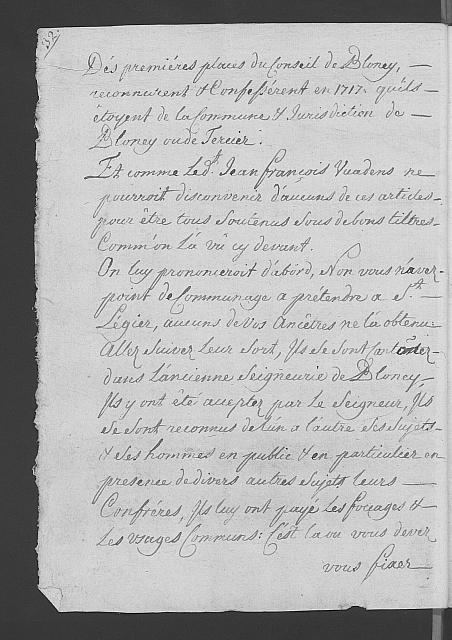 32.
Dés premiéres places du Conseil de Bloney, —
reconnurent & Confessérent en 1717. qu'ils —
étoyent de la Commune & Jurisdiction de —
Bloney ou de Tercier.
Et comme led.t Jean françois Vuadens ne
pourroit disconvenir d'aucuns de ces articles
pour être tous soutenus sous de bons tiltres
Comm'on l'a vû cy devant.
On luy prononceroit d'abord, Non vous n'avez
point de Communage a prétendre a S.t —
Légier, aucuns de Vos Ancêtres ne l'a obtenu
Allez suivez Leur Sort, Ils se sont
dans l'ancienne Seigneurie de Bloney,
Ils y ont été acceptez par le Seigneur, Ils
se sont reconnus de l'un a l'autre ses sujets
& ses hommes en public & en particulier en
presence de divers autres sujets leurs —
Confréres, Ils luy ont payé les focages &
les usages Communs: C'est la ou vous devez
vous fixer